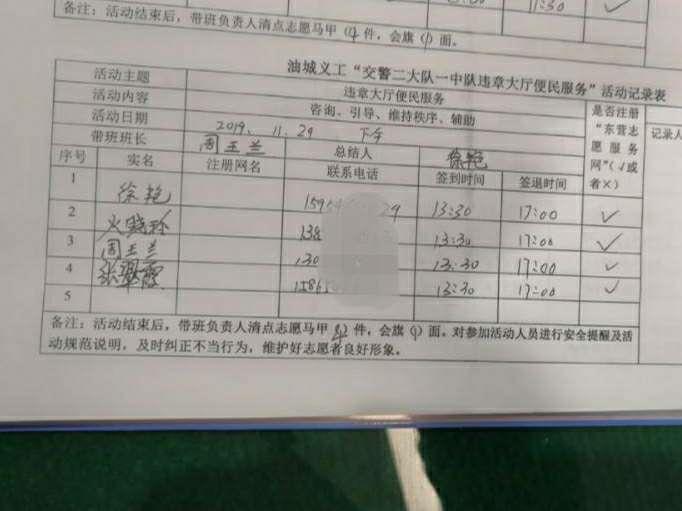 13:30 11:30 ✓
备注：活动结束后，带班负责人清点志愿马甲（4）件，会旗（1）面。
油城义工“交警二大队一中队违章大厅便民服务”活动记录表
活动主题 违章大厅便民服务 是否注册“东营志愿服务网”（√或者×） 记录人
活动内容 咨询、引导、维持秩序、辅助
活动日期 2019.11.29 下午
带班班长 周玉兰 总结人 徐艳
序号 实名 注册网名 联系电话 签到时间 签退时间
1 徐艳 29 13:30 17:00 ✓
2 138 13:30 17:00 ✓
3 周玉兰 130 13:30 17:00 ✓
4 13:30 17:00 ✓
5
备注：活动结束后，带班负责人清点志愿马甲（4）件，会旗（1）面。对参加活动人员进行安全提醒及活
动规范说明，及时纠正不当行为，维护好志愿者良好形象。